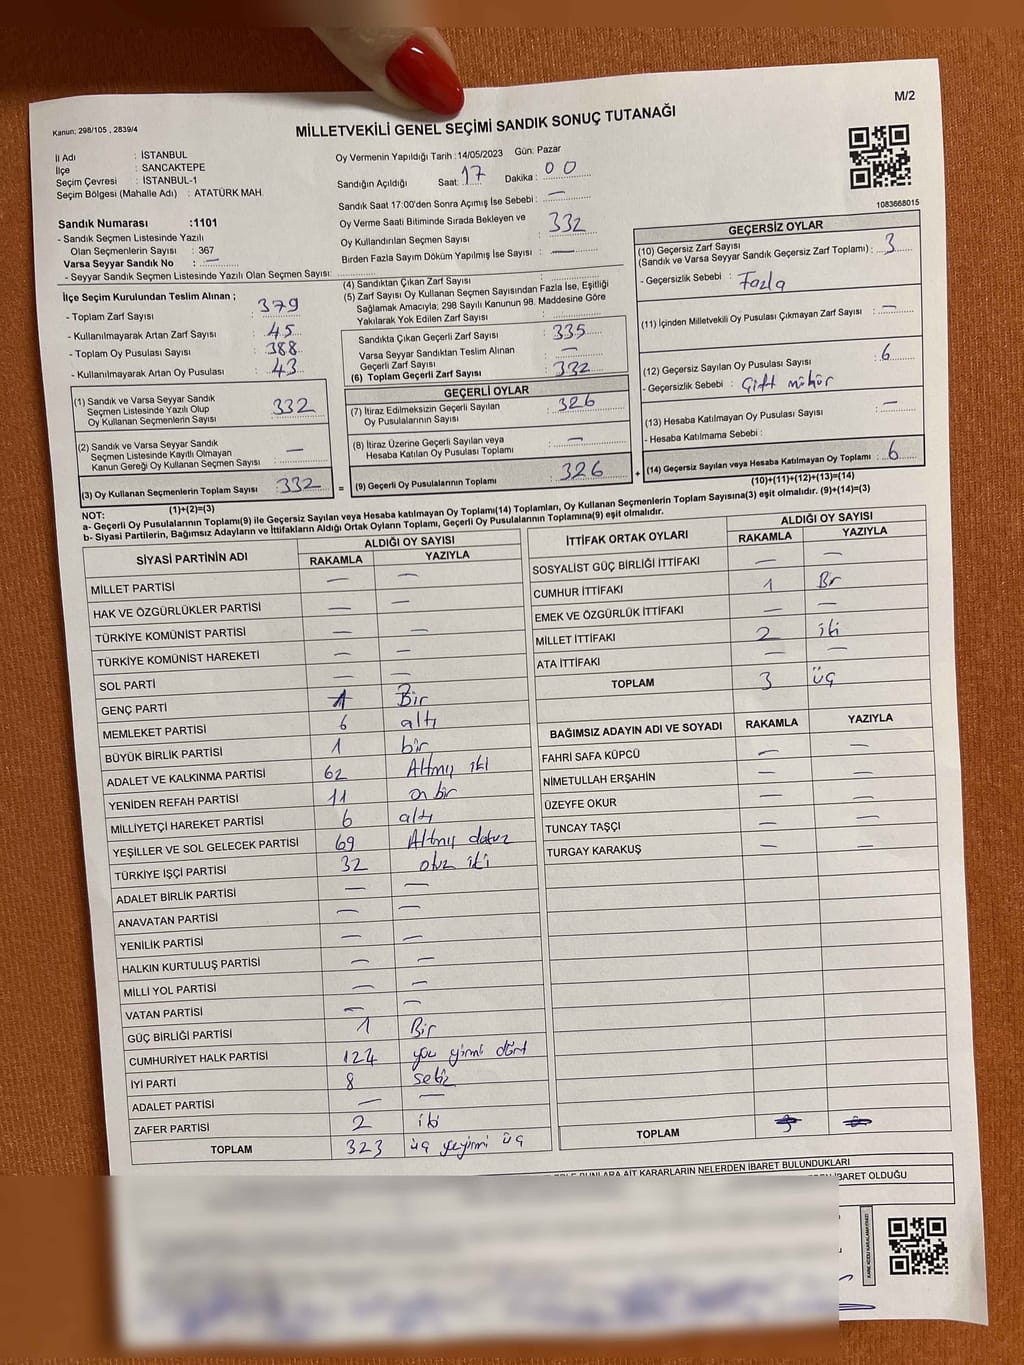 M/2
Kanun: 298/105 , 2839/4
MİLLETVEKİLİ GENEL SEÇİMİ SANDIK SONUÇ TUTANAĞI
İl Adı : İSTANBUL
İlçe : SANCAKTEPE
Seçim Çevresi : İSTANBUL-1
Seçim Bölgesi (Mahalle Adı) : ATATÜRK MAH.
Sandık Numarası :1101
- Sandık Seçmen Listesinde Yazılı
Olan Seçmenlerin Sayısı : 367
Varsa Seyyar Sandık No : —
- Seyyar Sandık Seçmen Listesinde Yazılı Olan Seçmen Sayısı:
Oy Vermenin Yapıldığı Tarih :14/05/2023 Gün: Pazar
Sandığın Açıldığı Saat: 17 Dakika : 00
Sandık Saat 17:00'den Sonra Açımış İse Sebebi : —
Oy Verme Saati Bitiminde Sırada Bekleyen ve
Oy Kullandırılan Seçmen Sayısı : 332
Birden Fazla Sayım Döküm Yapılmış İse Sayısı : —
1083668015
İlçe Seçim Kurulundan Teslim Alınan ;
- Toplam Zarf Sayısı : 379
- Kullanılmayarak Artan Zarf Sayısı : 45
- Toplam Oy Pusulası Sayısı : 388
- Kullanılmayarak Artan Oy Pusulası : 43
(1) Sandık ve Varsa Seyyar Sandık
Seçmen Listesinde Yazılı Olup
Oy Kullanan Seçmenlerin Sayısı : 332
(2) Sandık ve Varsa Seyyar Sandık
Seçmen Listesinde Kayıtlı Olmayan
Kanun Gereği Oy Kullanan Seçmen Sayısı : —
(3) Oy Kullanan Seçmenlerin Toplam Sayısı : 332
(1)+(2)=(3)
(4) Sandıktan Çıkan Zarf Sayısı :
(5) Zarf Sayısı Oy Kullanan Seçmen Sayısından Fazla İse, Eşitliği
Sağlamak Amacıyla; 298 Sayılı Kanunun 98. Maddesine Göre
Yakılarak Yok Edilen Zarf Sayısı :
Sandıkta Çıkan Geçerli Zarf Sayısı : 335
Varsa Seyyar Sandıktan Teslim Alınan
Geçerli Zarf Sayısı : —
(6) Toplam Geçerli Zarf Sayısı : 332
GEÇERLİ OYLAR
(7) İtiraz Edilmeksizin Geçerli Sayılan
Oy Pusulalarının Sayısı : 326
(8) İtiraz Üzerine Geçerli Sayılan veya
Hesaba Katılan Oy Pusulası Toplamı : —
= (9) Geçerli Oy Pusulalarının Toplamı : 326 +
GEÇERSİZ OYLAR
(10) Geçersiz Zarf Sayısı
(Sandık ve Varsa Seyyar Sandık Geçersiz Zarf Toplamı) : 3
- Geçersizlik Sebebi : Fazla
(11) İçinden Milletvekili Oy Pusulası Çıkmayan Zarf Sayısı : —
(12) Geçersiz Sayılan Oy Pusulası Sayısı : 6
- Geçersizlik Sebebi : Çift mühür
(13) Hesaba Katılmayan Oy Pusulası Sayısı : —
- Hesaba Katılmama Sebebi :
(14) Geçersiz Sayılan veya Hesaba Katılmayan Oy Toplamı : 6
(10)+(11)+(12)+(13)=(14)
NOT:
a- Geçerli Oy Pusulalarının Toplamı(9) ile Geçersiz Sayılan veya Hesaba katılmayan Oy Toplamı(14) Toplamları, Oy Kullanan Seçmenlerin Toplam Sayısına(3) eşit olmalıdır. (9)+(14)=(3)
b- Siyasi Partilerin, Bağımsız Adayların ve İttifakların Aldığı Ortak Oyların Toplamı, Geçerli Oy Pusulalarının Toplamına(9) eşit olmalıdır.
SİYASİ PARTİNİN ADI ALDIĞI OY SAYISI
RAKAMLA YAZIYLA
MİLLET PARTİSİ — —
HAK VE ÖZGÜRLÜKLER PARTİSİ — —
TÜRKİYE KOMÜNİST PARTİSİ — —
TÜRKİYE KOMÜNİST HAREKETİ — —
SOL PARTİ — —
GENÇ PARTİ 1 Bir
MEMLEKET PARTİSİ 6 altı
BÜYÜK BİRLİK PARTİSİ 1 bir
ADALET VE KALKINMA PARTİSİ 62 Altmış iki
YENİDEN REFAH PARTİSİ 11 on bir
MİLLİYETÇİ HAREKET PARTİSİ 6 altı
YEŞİLLER VE SOL GELECEK PARTİSİ 69 Altmış dokuz
TÜRKİYE İŞÇİ PARTİSİ 32 otuz iki
ADALET BİRLİK PARTİSİ — —
ANAVATAN PARTİSİ — —
YENİLİK PARTİSİ — —
HALKIN KURTULUŞ PARTİSİ — —
MİLLİ YOL PARTİSİ — —
VATAN PARTİSİ — —
GÜÇ BİRLİĞİ PARTİSİ 1 Bir
CUMHURİYET HALK PARTİSİ 124 yüz yirmi dört
İYİ PARTİ 8 sekiz
ADALET PARTİSİ — —
ZAFER PARTİSİ 2 iki
TOPLAM 323 üç yeyirmi üç
İTTİFAK ORTAK OYLARI ALDIĞI OY SAYISI
RAKAMLA YAZIYLA
SOSYALİST GÜÇ BİRLİĞİ İTTİFAKI — —
CUMHUR İTTİFAKI 1 Bir
EMEK VE ÖZGÜRLÜK İTTİFAKI — —
MİLLET İTTİFAKI 2 iki
ATA İTTİFAKI — —
TOPLAM 3 üç
BAĞIMSIZ ADAYIN ADI VE SOYADI RAKAMLA YAZIYLA
FAHRİ SAFA KÜPCÜ — —
NİMETULLAH ERŞAHİN — —
ÜZEYFE OKUR — —
TUNCAY TAŞÇI — —
TURGAY KARAKUŞ — —
TOPLAM
BUNLARA AİT KARARLARIN NELERDEN İBARET BULUNDUKLARI
İBARET OLDUĞU